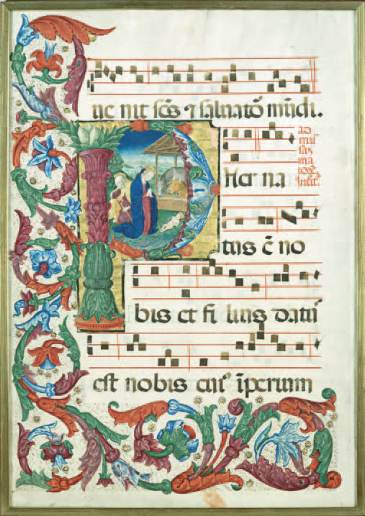 ue nit scs ⁊ saluatō mūdi.
AD
MIS
SAS
MA
PUer na
tus ē no
bis et fi lius datus
est nobis cui' īperium